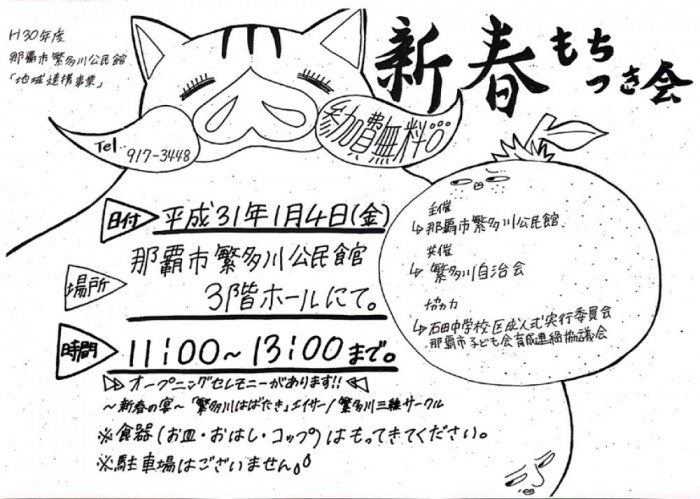 H30年度
那覇市繁多川公民館
「地域連携事業」
新春もち
つき会
Tel
917-3448
参加費無料
日付 平成31年1月4日(金)
場所 那覇市繁多川公民館
3階ホールにて。
時間 11:00~13:00まで。
オープニングセレモニーがあります!!
~新春の宴~「繁多川はばたき」エイサー/繁多川三線サークル
※食器(お皿・おはし・コップ)はもってきてください。
※駐車場はございません。
主催
↳那覇市繁多川公民館
共催
↳繁多川自治会
協力
↳石田中学校区成人式実行委員会
那覇市子ども会育成連絡協議会